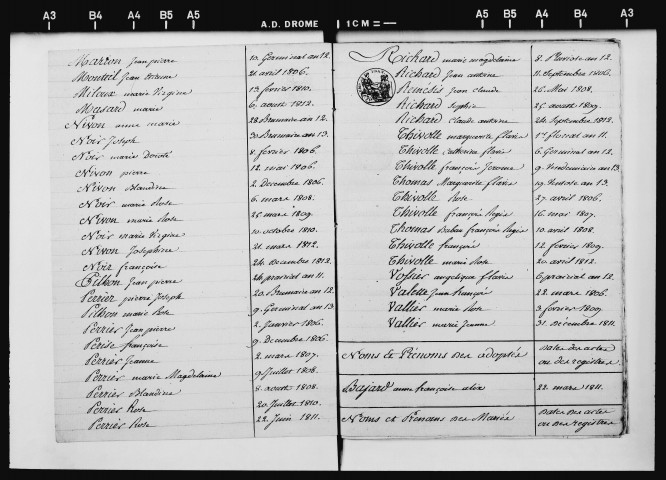 A3 B4 A4 B5 A5 A.D. DROME 1CM A5 B5 A4 B4 A3
Marron jean pierre 10 Germinal an 12.
Monteil jean etienne 21 avril 1806.
Miloux marie Virginie 13 fevrier 1810.
Masard marie 6 aoust 1812.
Nivon anne marie 28 Brumaire an 12.
Noir Joseph 30 Brumaire an 13.
Noir marie 8 fevrier 1806.
Nivon pierre 12 mai 1806.
Nivon Blandine 2 Decembre 1806.
Noir marie Rose 6 mars 1808.
Nivon marie Rose 25 mars 1809.
Noir marie Virginie 10 octobre 1810.
Nivon Josephine 21 mars 1812.
Noir françoise 24 Decembre 1812.
Pithon Jean pierre 26 prairial an 11.
Perrier pierre Joseph 20 Brumaire an 12.
Pithon marie Rose 9 Germinal an 13.
Perrier Jean pierre 2 Janvier 1806.
françoise 9 Decembre 1806.
Perrier Jeanne 2 mars 1807.
Perrier marie Magdelaine 9 Juillet 1808.
Perrier Blandine 8 aoust 1808.
Perrier Rose 20 Juillet 1810.
Perrier Rose 22 Juin 1811.
Richard marie magdelaine 8 Pluviose an 12.
Richard Jean antoine 11 Septembre 1806.
jean claude 26 Mai 1808.
Richard Sophie 25 aoust 1809.
Richard claude antoine 24 Septembre 1812.
Thivolle marguerite flavie 1er floreal an 11.
Thivolle catherine flavie 6 Germinal an 12.
Thivolle françois Jerome 9 Vendemiaire an 13.
Thomas Marguerite flavie 19 Ventose an 13.
Thivolle Rose 27 avril 1806.
Thivolle françois Regis 16 mai 1807.
Thomas françois Regis 10 avril 1808.
Thivolle françois 12 fevrier 1809.
Thivolle marie Rose 20 avril 1812.
angelique flavie 6 prairial an 12.
Valette Jean françois 22 mars 1806.
Vallier marie Rose 3 fevrier 1809.
Vallier marie Jeanne 31 Decembre 1811.
Noms & Prenoms des adoptés Dates des actes
ou des registres
Bajard anne françoise alix 22 mars 1811.
Noms et Prenoms des Mariés Dates des actes
ou des registres
A3 B4 A4 B5 A5 A5 B5 A4 B4 A3